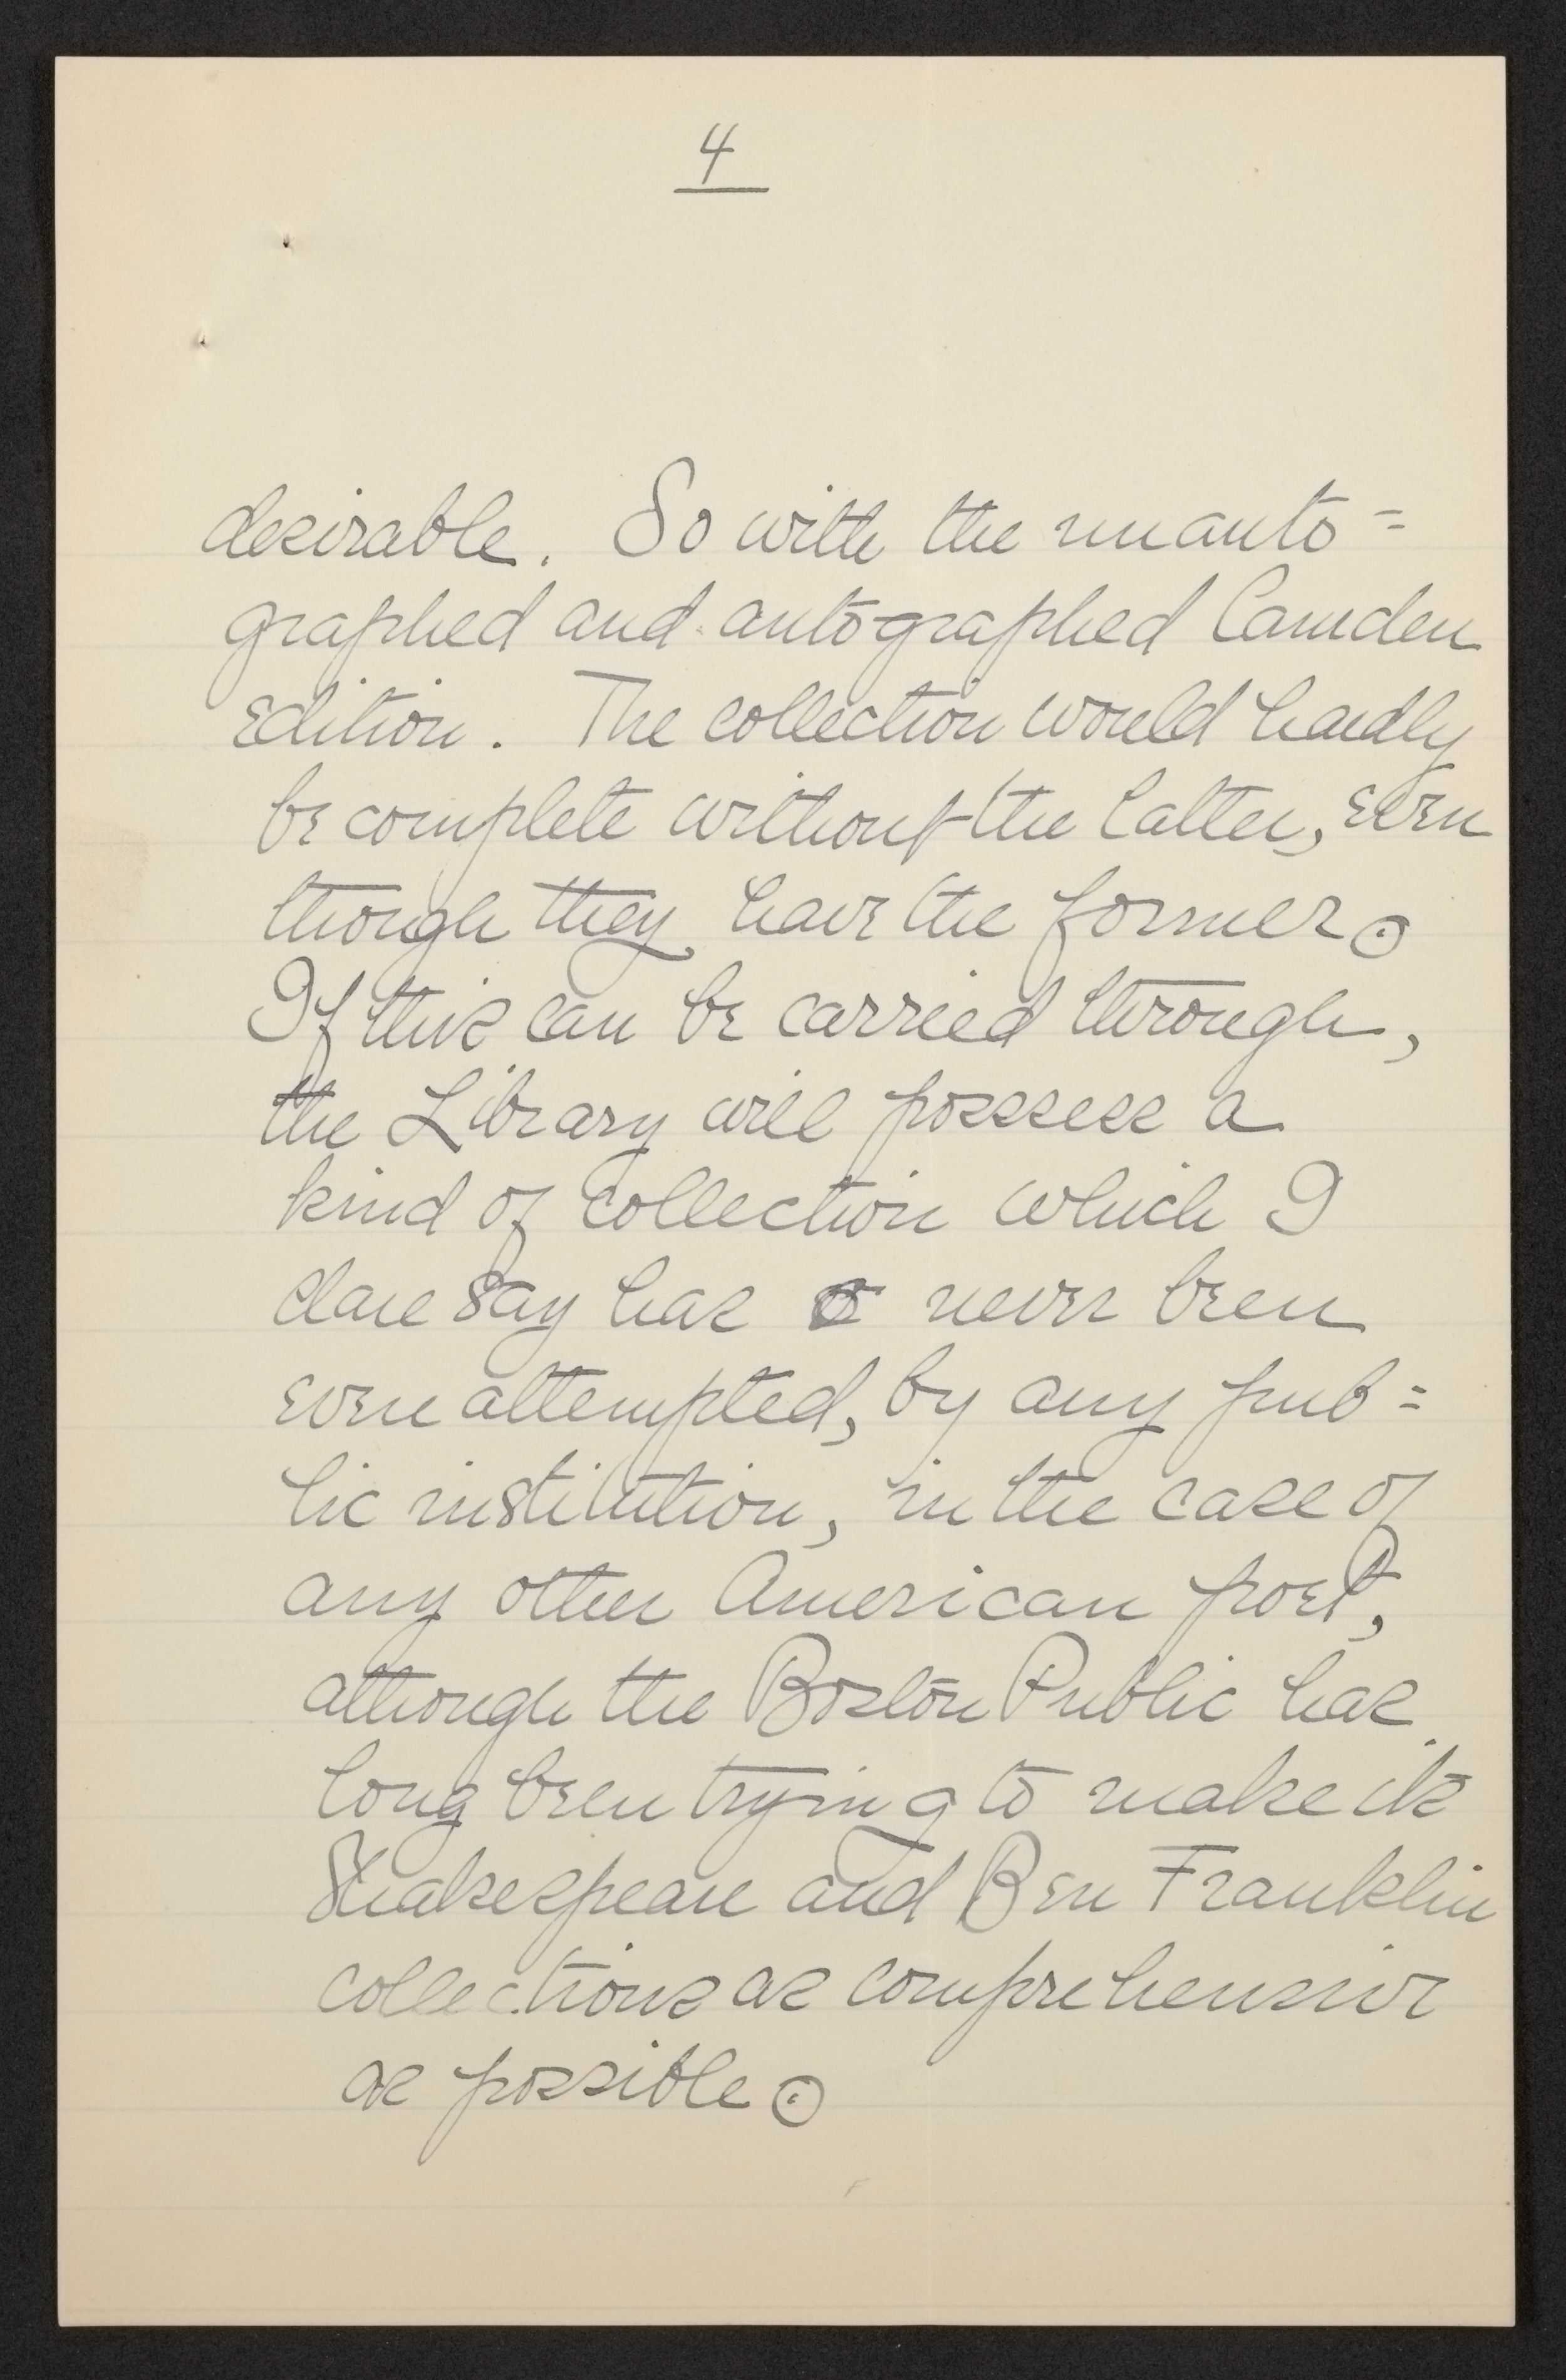 4
desirable. So with the unauto=
graphed and autographed Camden
Edition. The collection would hardly
be complete without the latter, even
though they have the former.
If this can be carried through,
the Library will possess a
kind of collection which I
dare say has never been
even attempted, by any pub=
lic institution, in the case of
any other American poet,
although the Boston Public has
long been trying to make its
Shakespeare and Ben Franklin
collections as comprehensive
as possible.